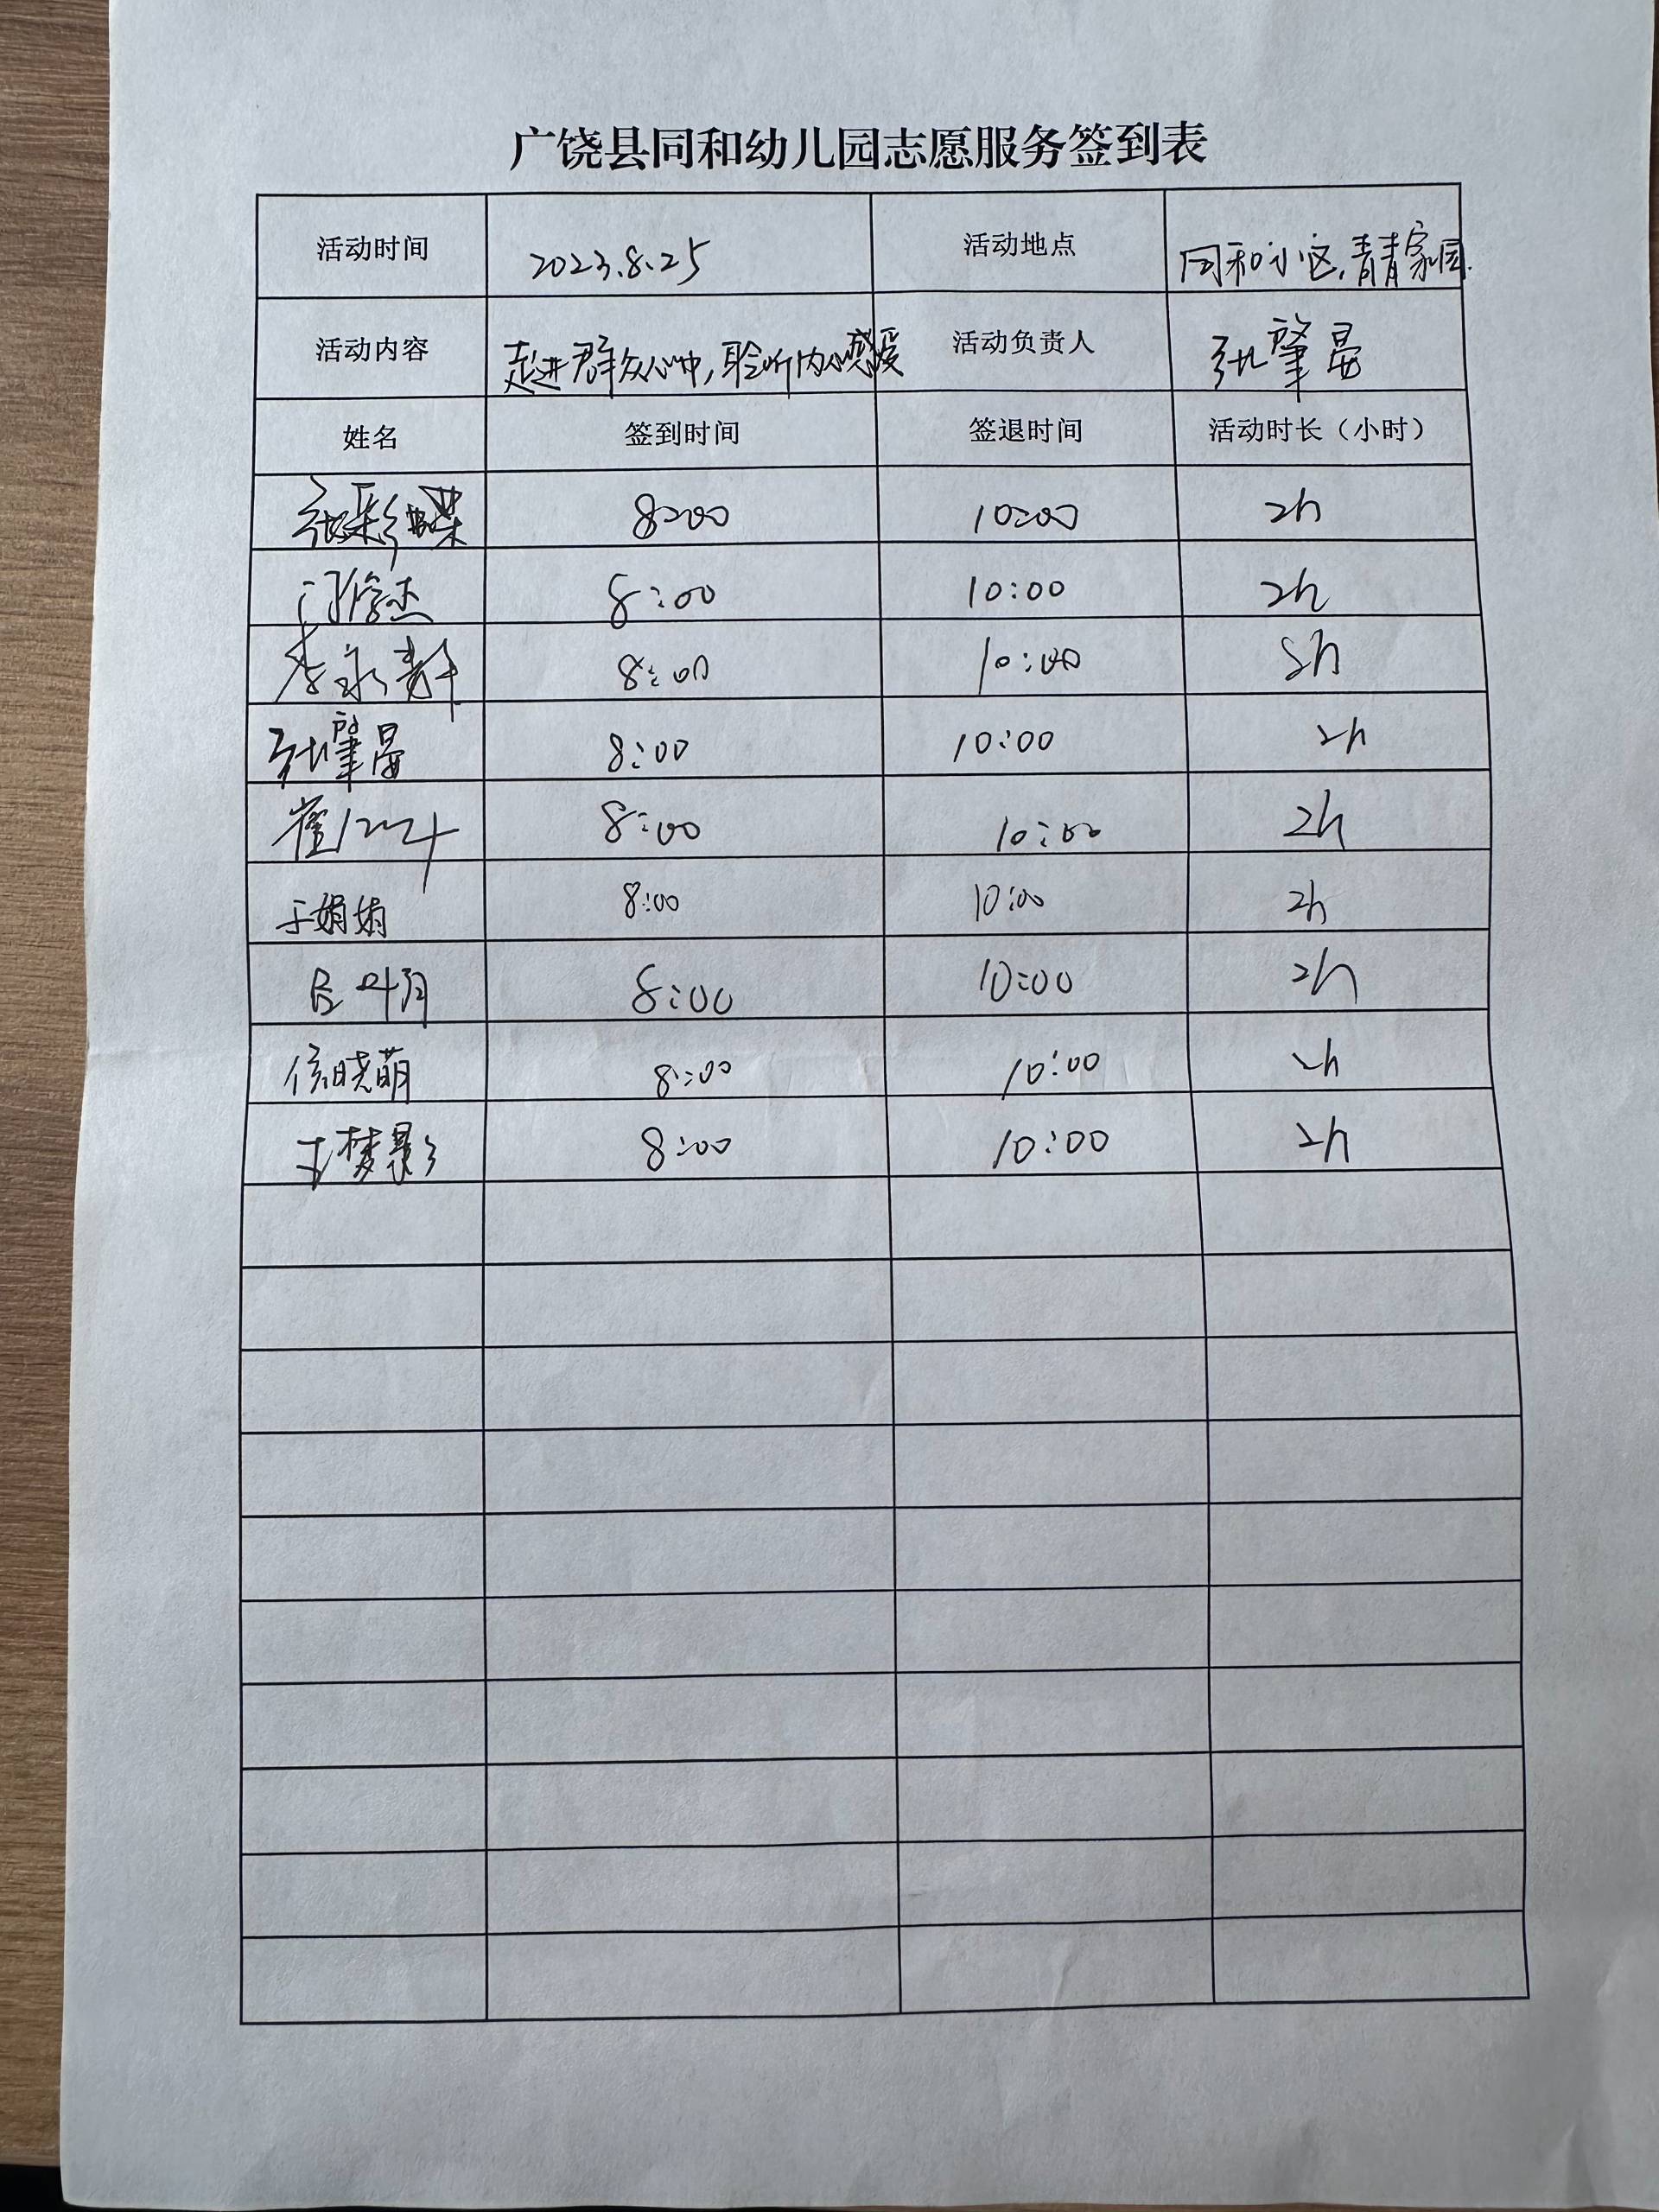 广饶县同和幼儿园志愿服务签到表
活动时间 2023.8.25 活动地点 同和小区,青青家园.
活动内容 走进群众心中,聆听内心感受 活动负责人 张肇晏
姓名 签到时间 签退时间 活动时长（小时）
张彩蝶 8:00 10:00 2h
8:00 10:00 2h
李永青 8:00 10:00 2h
张肇晏 8:00 10:00 2h
崔 8:00 10:00 2h
于娟娟 8:00 10:00 2h
8:00 10:00 2h
侯晓萌 8:00 10:00 2h
王梦影 8:00 10:00 2h